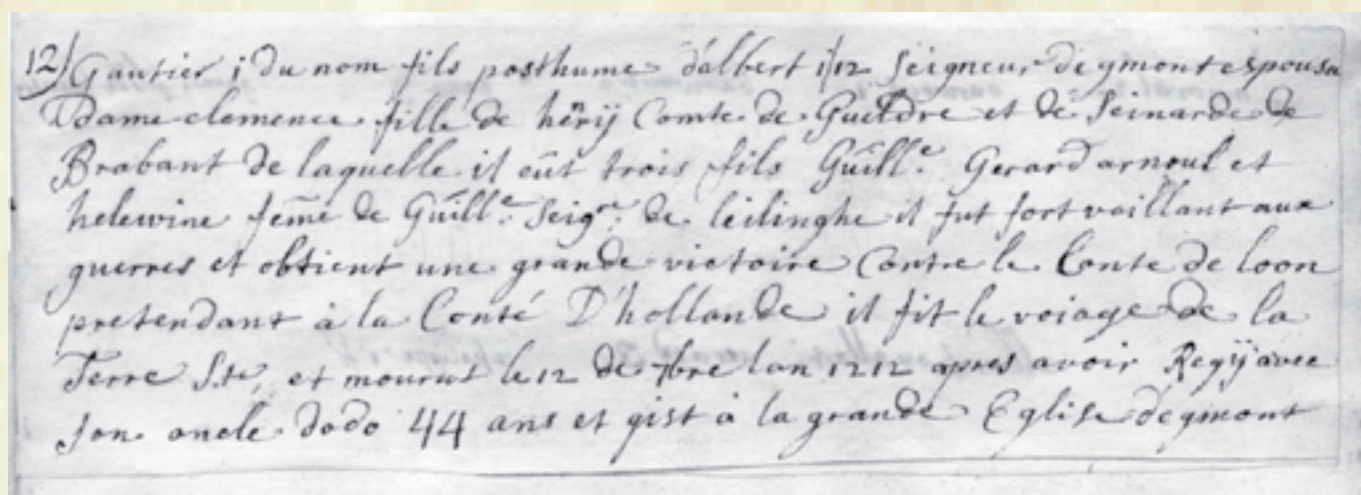 12) Gautier i du nom fils posthume d'albert i/12 Seigneur degmont espousa
Dame clemence fille de hērÿ Comte de Gueldre et de Seinarde de
Brabant de laquelle il eût trois fils Guill.e Gerard arnoul et
helewine fēme de Guill.e Seig.r de leilinghe il fut fort vaillant aux
guerres et obtient une grande victoire Contre le Conte de loon
pretendant à la Conté D'hollande il fit le voiage de la
Terre S.te, et mourut le 12 de 7bre lan 1212 apres avoir Regÿ avec
son oncle dodo 44 ans et gist à la grande Eglise degmont